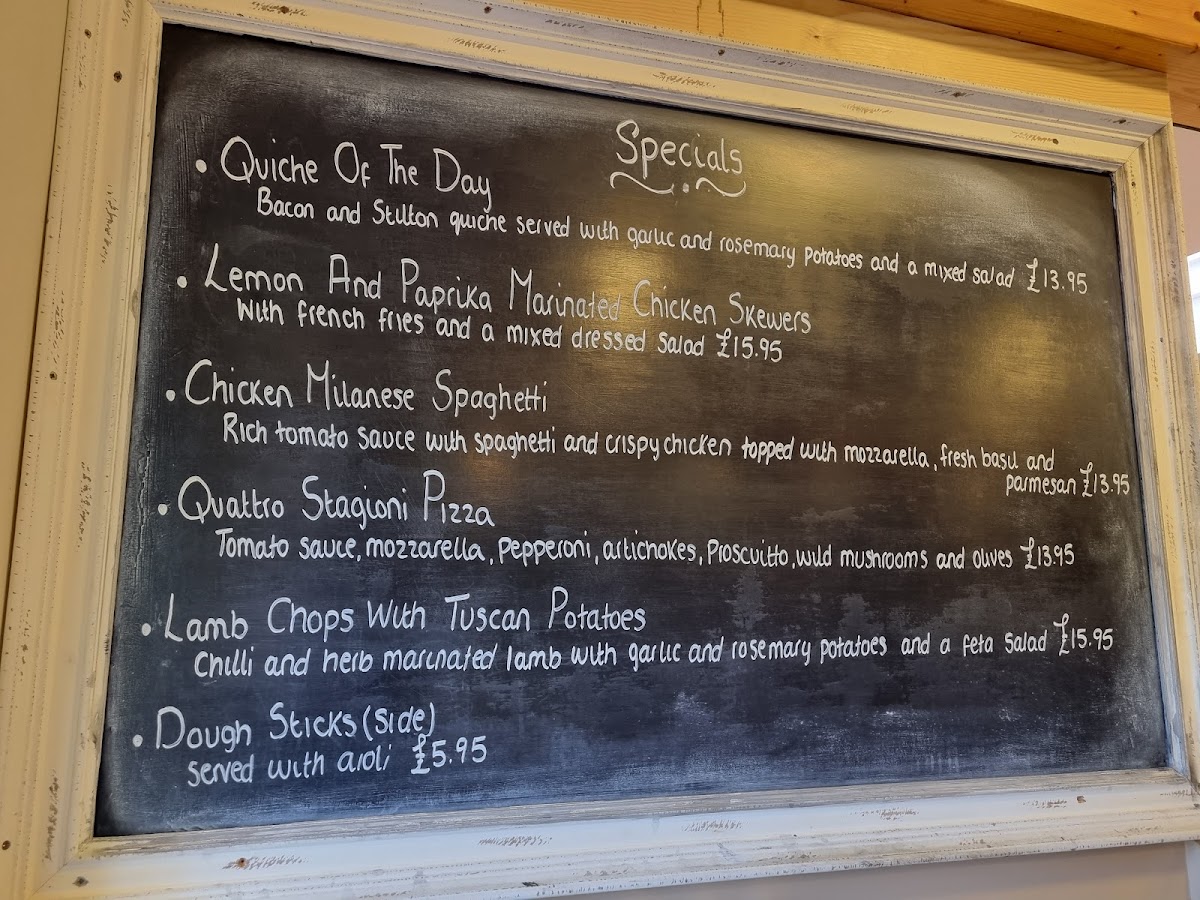 Specials
• Quiche Of The Day
Bacon and Stilton quiche served with garlic and rosemary potatoes and a mixed salad £13.95
• Lemon And Paprika Marinated Chicken Skewers
With french fries and a mixed dressed salad £15.95
• Chicken Milanese Spaghetti
Rich tomato sauce with spaghetti and crispy chicken topped with mozzarella, fresh basil and
parmesan £13.95
• Quattro Stagioni Pizza
Tomato sauce, mozzarella, Pepperoni, artichokes, Proscuitto, wild mushrooms and olives £13.95
• Lamb Chops With Tuscan Potatoes
Chilli and herb marinated lamb with garlic and rosemary potatoes and a feta salad £15.95
• Dough Sticks (Side)
served with aioli £5.95